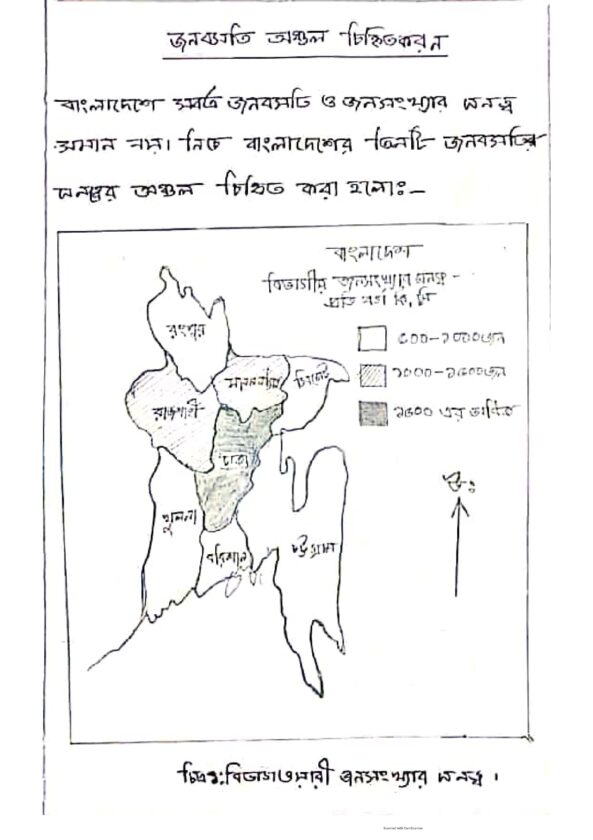 জনবসতি অঞ্চল চিহ্নিতকরন
বাংলাদেশে সর্বত্র জনবসতি ও জনসংখ্যার ঘনত্ব
সমান নয়। নিচে বাংলাদেশের তিনটি জনবসতির
ঘনত্বের অঞ্চল চিহ্নিত করা হলোঃ-
বাংলাদেশ
বিভাগীয় জনসংখ্যার ঘনত্ব -
প্রতি বর্গ কি, মি
৫০০-১০০০জন
১০০০-১৫০০জন
১৫০০ এর অধিক
রংপুর
ময়মনসিংহ
সিলেট
রাজশাহী
ঢাকা
উঃ
খুলনা
বরিশাল
চট্টগ্রাম
চিত্র:বিভাগওয়ারী জনসংখ্যার ঘনত্ব।